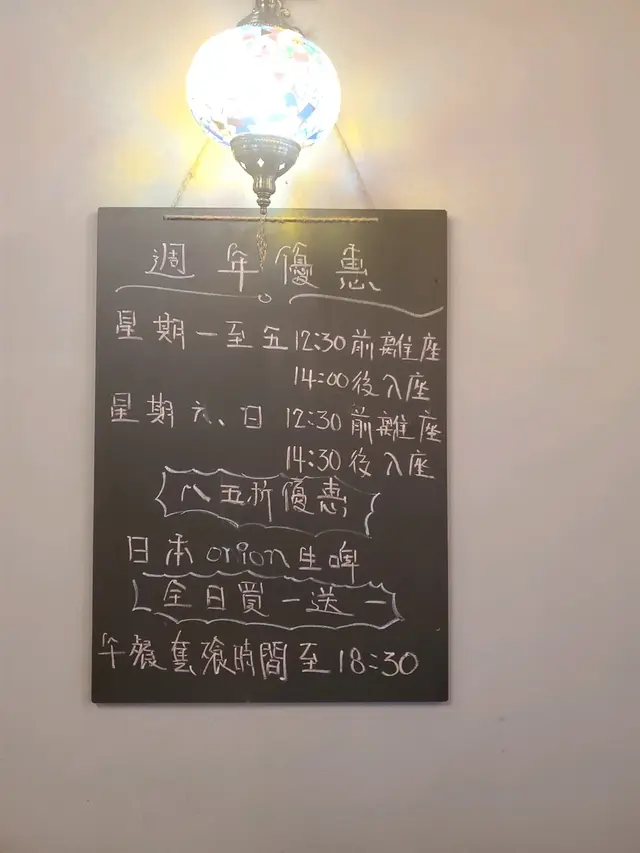 週年優惠
星期一至五12:30前離座
14:00後入座
星期六、日 12:30前離座
14:30後入座
八五折優惠
日本orion生啤
全日買一送一
午餐 時間至18:30